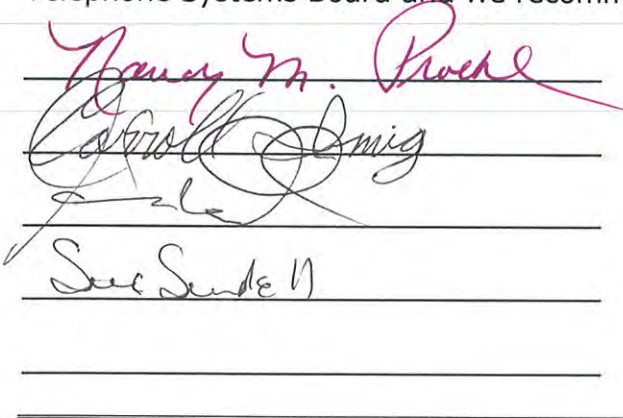 Telephone Systems Board and we recomm
Nancy M. Proehl
Carroll Imig
Sue Sundell